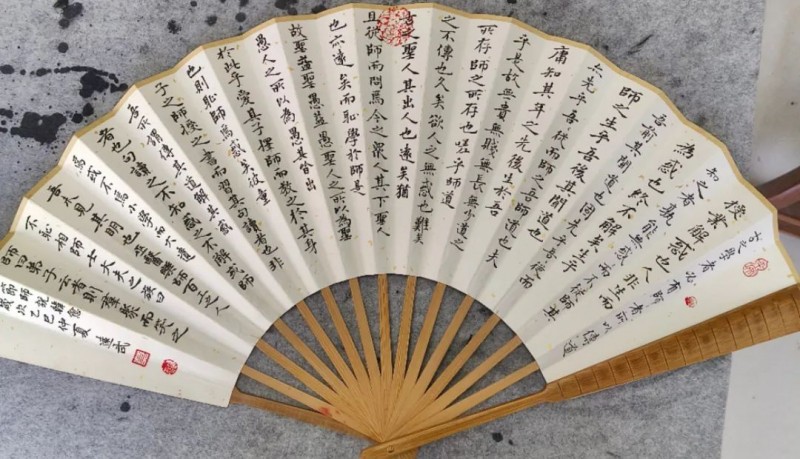 古之學者必有師者所以傳道
授業解惑也人非生而
知之者孰能無惑而不從師其
為惑也終不解矣生乎
吾前其聞道也固先乎吾從而
師之生乎吾後其聞道也
亦先乎吾從而師之吾師道也夫
庸知其年之先後生於吾
乎是故無貴無賤無長無少道之
所存師之所存也嗟乎師道
之不傳也久矣欲人之無惑也難矣
古之聖人其出人也遠矣猶
且從師而問焉今之眾人其下聖人
也亦遠矣而恥學於師是
故聖益聖愚益愚聖人之所以為聖
愚人之所以為愚其皆出
於此乎愛其子擇師而教之於其身
也則恥師焉惑矣彼童
子之師授之書而習其句讀者也非
吾所謂傳其道解其惑
者也句讀之不知惑之不解或師
焉或不焉小學而大遺
吾未見其明也巫醫樂師百工之人
不恥相師士大夫之族曰
師曰弟子云者則羣聚而笑之
節師說韓愈
歲次乙巳仲夏 武